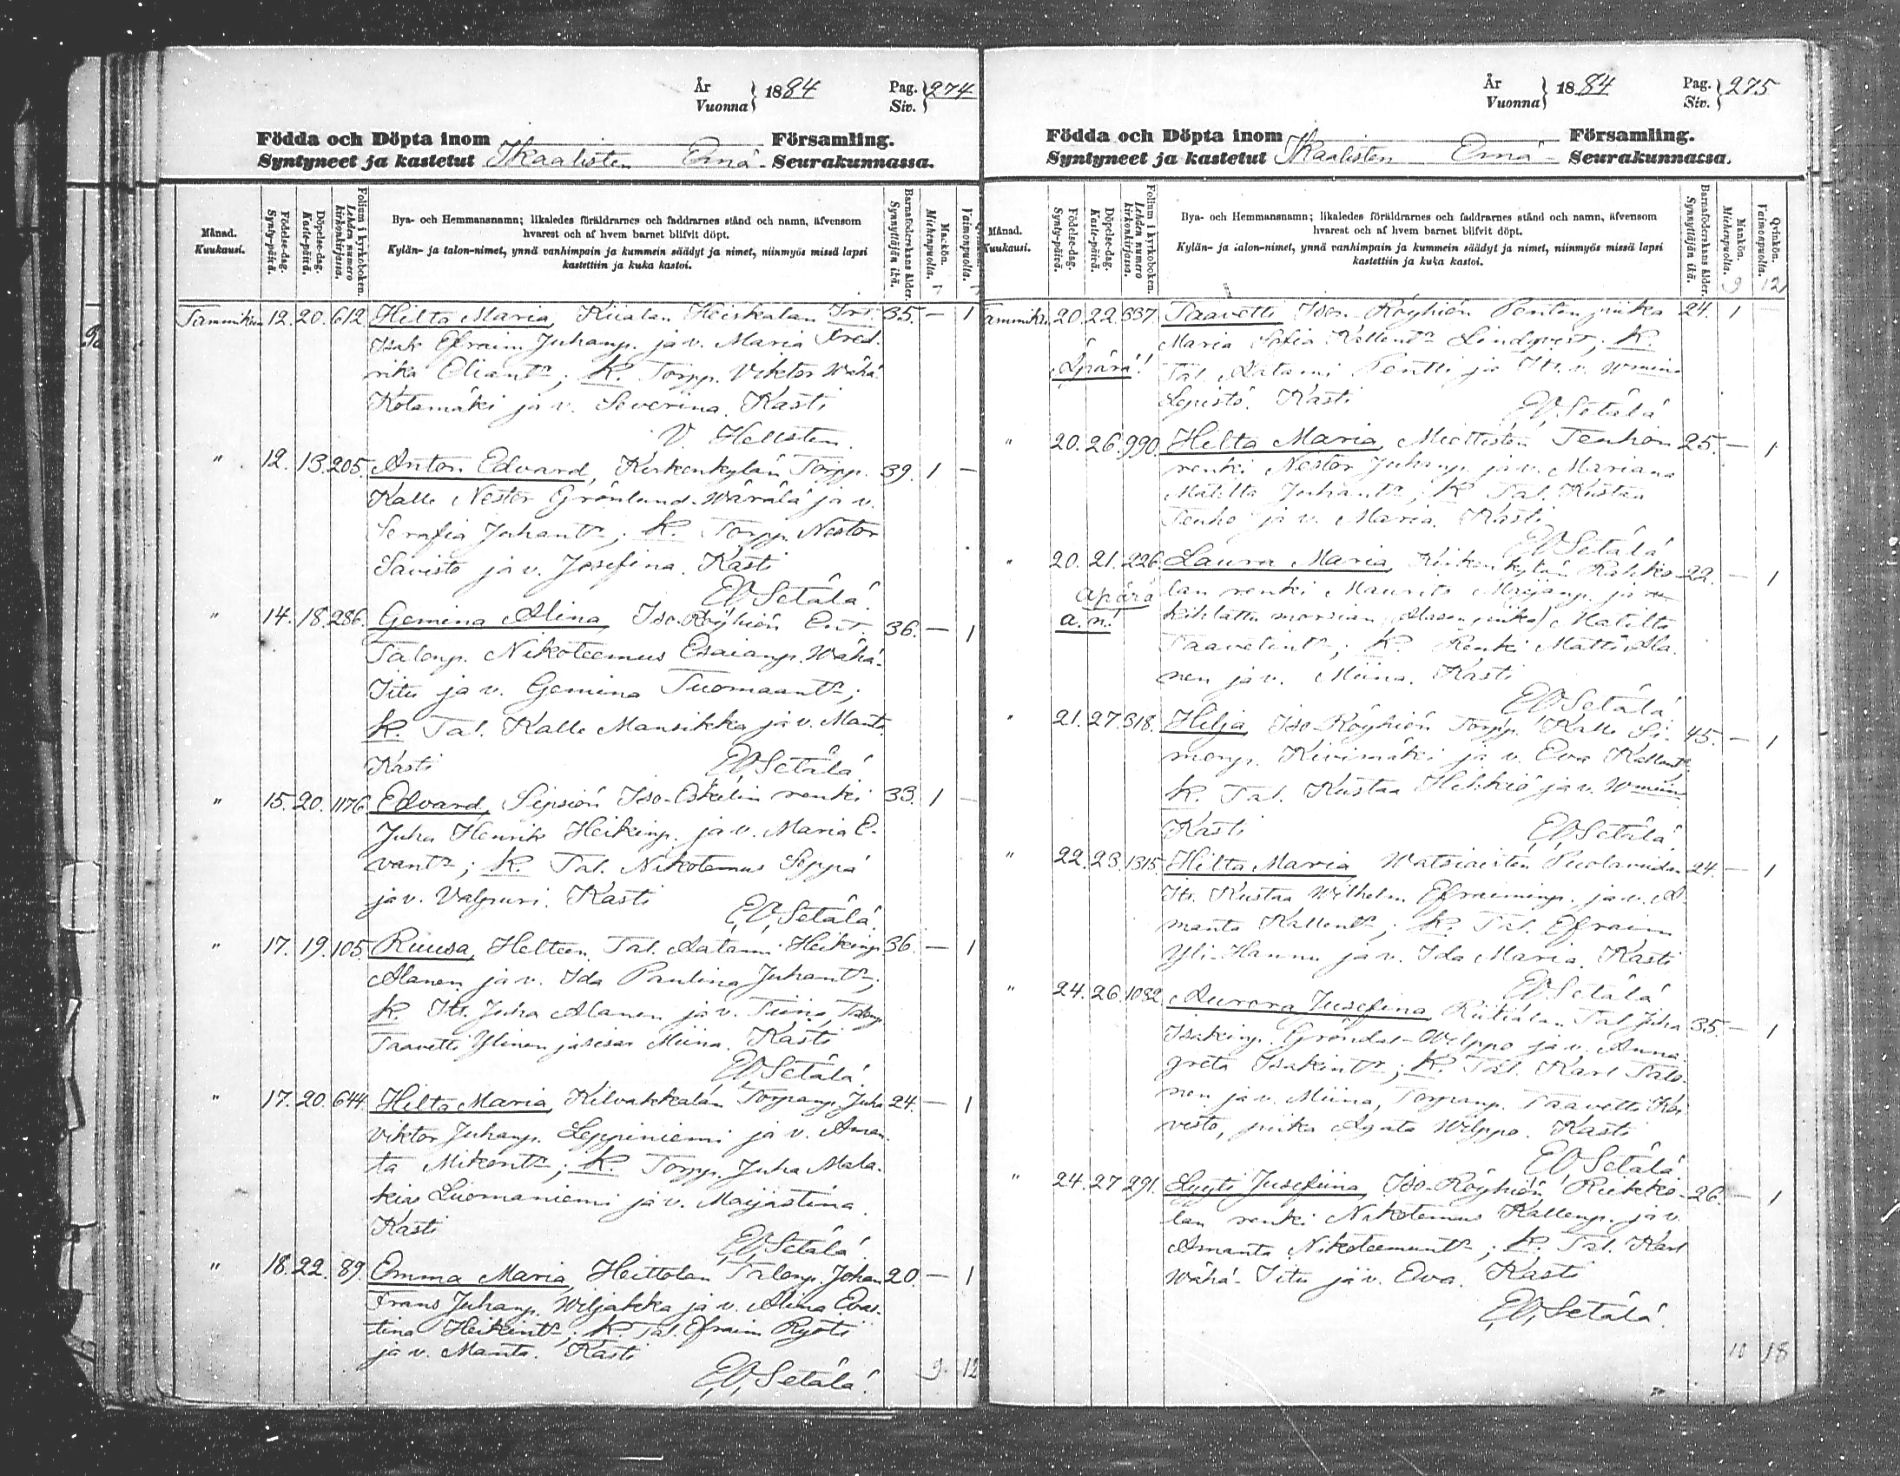 År
Vuonna } 1884 Pag.
Siv. } 274
Födda och Döpta inom
Syntyneet ja kastetut Ikaalisten Emä- Församling.
Seurakunnassa.
Månad.
Kuukausi.
Födelse-dag.
Synty-päivä.
Döpelse-dag.
Kaste-päivä.
Folium i kyrkoboken.
Lehden numero kirkonkirjassa.
Bya- och Hemmansnamn; likaledes föräldrarnes och faddrarnes stånd och namn, äfvensom
hvarest och af hvem barnet blifvit döpt.
Kylän- ja talon-nimet, ynnä vanhimpain ja kummein säädyt ja nimet, niinmyös missä lapsi
kastettiin ja kuka kastoi.
Barnaföderskans ålder.
Synnyttäjän ikä.
Mankön.
Miehenpuolta.
Vaimonpuolta.
Tammikuu 12. 20. 612. Hilta Maria, Kiialan Heiskalan 35. — 1
Isak Efraim Juhanp. ja v. Maria Fred-
rika Eliant:r; K. Torpp. Viktor Wähä-
Kotamäki ja v. Severiina. Kasti
V. Hellsten.
" 12. 13. 205. Anton Edvard, Kirkonkylän Torpp. 39. 1 —
Kalle Nestor Grönlund-Wärälä ja v.
Serafia Juhant:r; K. Torpp. Nestor
Savisto ja v. Josefina. Kasti
E.V. Setälä.
" 14. 18. 286. Gemina Alina, Iso-Röyhiön 36. — 1
Talonp. Nikoteemus Esaianp. Wähä-
Iitu ja v. Gemina Tuomaant:r;
K. Tal. Kalle Mansikka ja v. Manta.
Kasti E.V. Setälä.
" 15. 20. 1176. Edvard, Sipsiön Iso-Eskelin renki 33. 1 —
Juha Henrik Heikinp. ja v. Maria E-
vant:r; K. Tal. Nikotemus Seppä
ja v. Valpuri. Kasti
E.V. Setälä.
" 17. 19. 105. Ruusa, Heltten Tal. Aatami Heikinp. 36. — 1
Alanen ja v. Ida Paulina Juhant:r;
K. Its. Juha Alanen ja v. Tiina, Talonp.
Taavetti Ylinen ja sesar Miina. Kasti
E.V. Setälä.
" 17. 20. 644. Hilta Maria, Kilvakkalan Torpanp. Juha 24. — 1
Viktor Juhanp. Leppiniemi ja v. Aman-
ta Mikont:r; K. Torpp. Juha Mala-
kias Luomaniemi ja v. Maijastina.
Kasti E.V. Setälä.
" 18. 22. 89. Emma Maria, Heittolan Talonp. Johan 20. — 1
Frans Juhanp. Wiljakka ja v. Alina Evas-
tina Heikint:r; K. Tal. Efraim Ryöti
ja v. Manta. Kasti
E.V. Setälä. 9. 12
År
Vuonna } 1884 Pag.
Siv. } 275
Födda och Döpta inom
Syntyneet ja kastetut Ikaalisten Emä- Församling.
Seurakunnassa.
Månad.
Kuukausi.
Födelse-dag.
Synty-päivä.
Döpelse-dag.
Kaste-päivä.
Folium i kyrkoboken.
Lehden numero kirkonkirjassa.
Bya- och Hemmansnamn; likaledes föräldrarnes och faddrarnes stånd och namn, äfvensom
hvarest och af hvem barnet blifvit döpt.
Kylän- ja talon-nimet, ynnä vanhimpain ja kummein säädyt ja nimet, niinmyös missä lapsi
kastettiin ja kuka kastoi.
Barnaföderskans ålder.
Synnyttäjän ikä.
Mankön.
Miehenpuolta.
Qvinkön.
Vaimonpuolta.
9 12
Tammikuu 20. 22. 337. Taavetti Iso-Röyhiön Pentin piika 24. 1 —
Maria Sofia Kallent:r Lindqvist; K.
Äpärä! Tal. Aatami Pentti ja Its. v. Wmiina
Lepistö. Kasti
E.V. Setälä
" 20. 26. 990. Hilta Maria, Miettisten Tenhon 25. — 1
renki Nestor Juhanp. ja v. Mariana
Matilta Juhant:r; K. Tal. Kustaa
Tenho ja v. Maria. Kasti
E.V. Setälä
" 20. 21. 226. Laura Maria, Kirkonkylän 22. — 1
Äpärä lan renki Maurits Maijanp. ja
a.n! kihlattu morsian, piika) Matilta
Taavetint:r; K. Renki Matti Ala-
nen ja v. Miina. Kasti
E.V. Setälä.
" 21. 27. 318. Hilja, Iso-Röyhiön Torpp. Kalle Si- 45. — 1
monp. Kivimäki ja v. Eva Kallent:r
K. Tal. Kustaa Heikkiö ja v. Wmiina
Kasti E.V. Setälä.
" 22. 23. 1315. Hilta Maria Watsiaisten 24. — 1
Its. Kustaa Wilhelm Efraiminp. ja v. A-
manta Kallent:r; K. Tal. Efraim
Yli-Hannu ja v. Ida Maria. Kasti
E.V. Setälä
" 24. 26. 1032. Aurora Jusefina Riitialan Tal. Juha 35. — 1
Isakinp. Gröndal-Wilppo ja v. Anna-
greta Isakint:r; K. Tal. Karl Talo-
nen ja v. Miina, Torpanp. Taavetti Koi-
visto, piika Agata Wilppo. Kasti
E.V. Setälä
" 24. 27. 291. Lyyti Jusefiina, Iso-Röyhiön Riikkö- 26. — 1
lan renki Nikotemus Kallenp. ja v.
Amanta Nikoteemunt:r; K. Tal. Karl
Wähä-Iitu ja v. Eva. Kasti
E.V. Setälä.
10 18